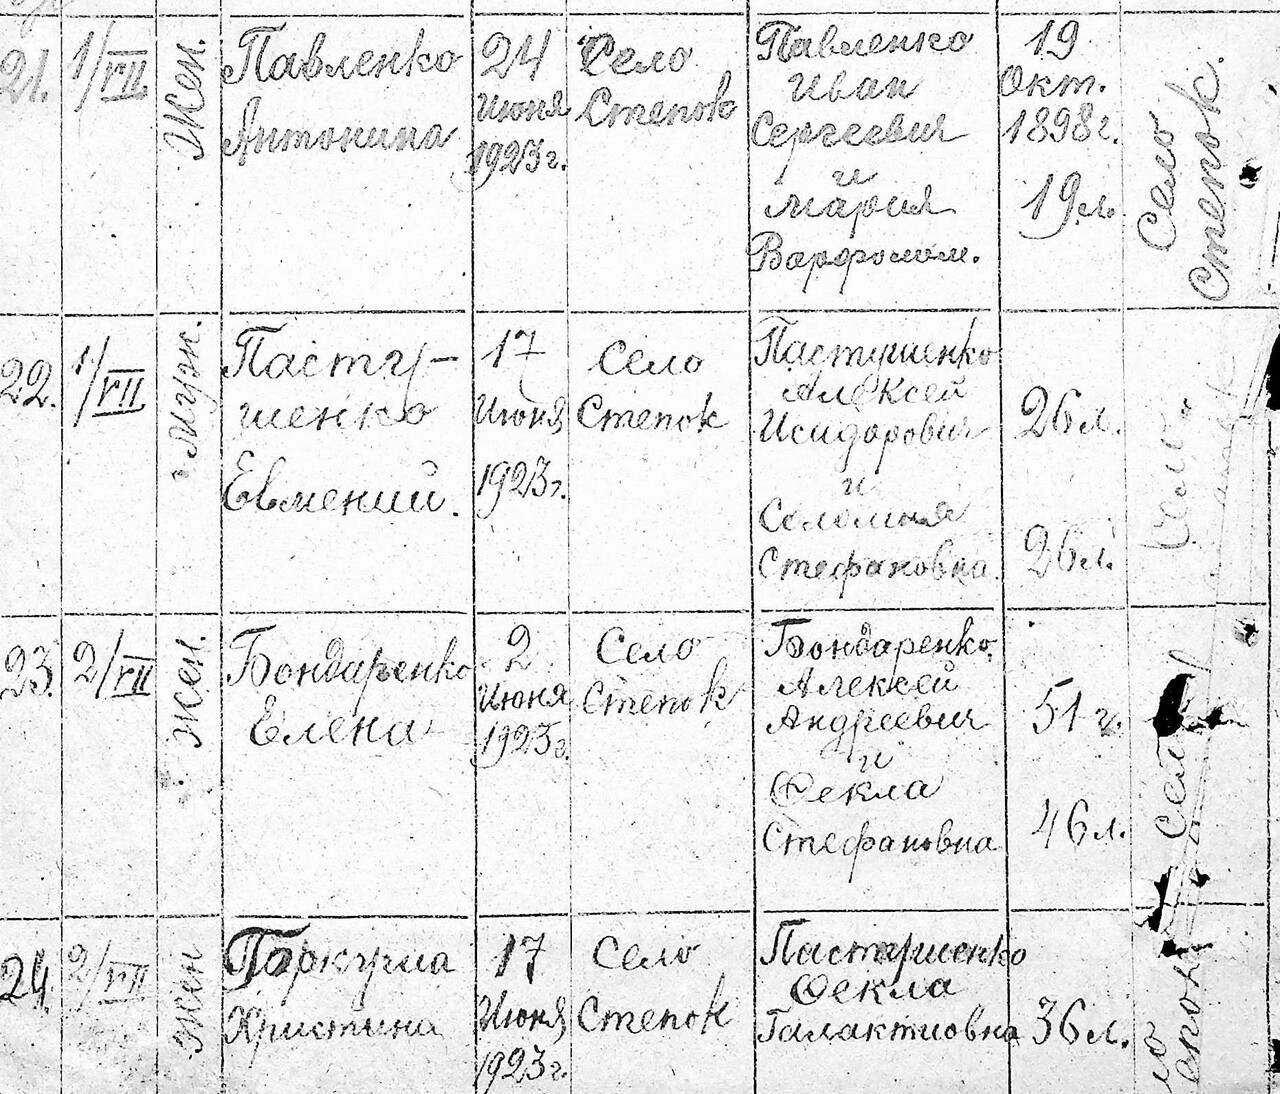 21.
1/VII
Жен.
Павленко
Антонина
24
Июня
1923г.
Село
Степок
Павленко
Иван
Сергеевич
и
Мария
Варфолом.
19
Окт.
1898г.
19л.
Село
Степок.
22.
1/VII
Муж.
Пасту-
шенко
Евмений.
17
Июня
1923г.
Село
Степок
Пастушенко
Алексей
Исидорович
и
Соломия
Стефановна
26л.
26л.
Село
23.
2/VII
Жен.
Бондаренко
Елена
2
Июня
1923г.
Село
Степок
Бондаренко
Алексей
Андреевич
и
Фекла
Стефановна
51г.
46л.
24.
2/VII
Жен
Христина
17
Июня
1923г.
Село
Степок
Пастушенко
Фекла
Галактиовна
36л.